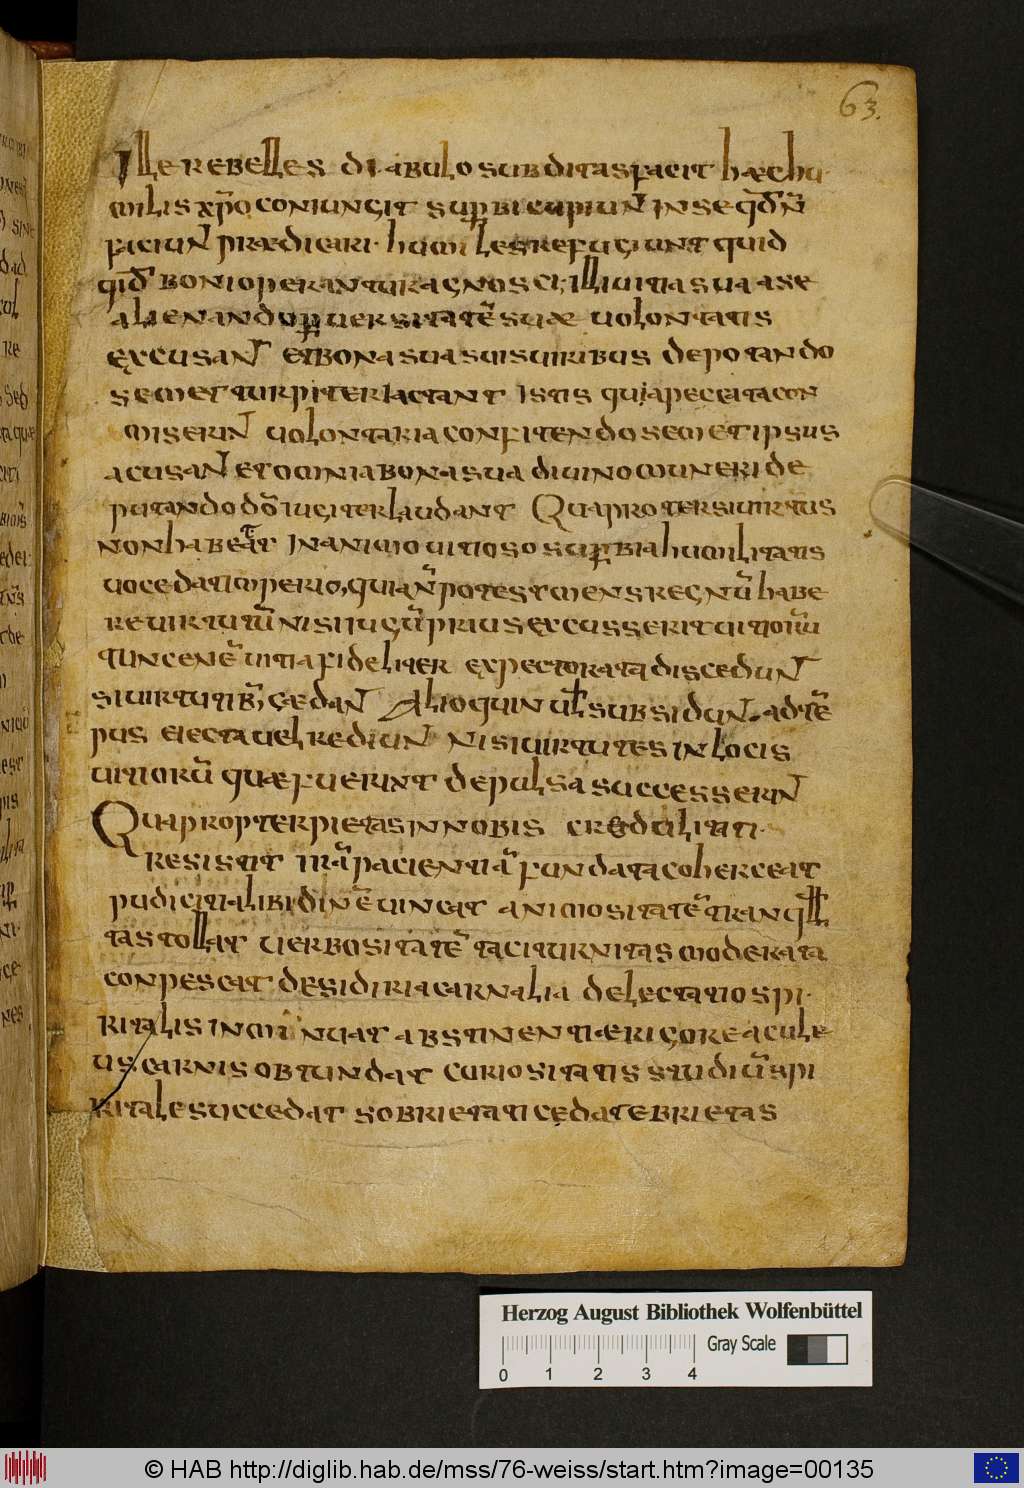 63.
Ille rebelles diabulo subditas facit haec hu
milis xp̄o coniungit sup̱bi cupiuN in se qd̄ N̄
faciuN praedicari · humiles refugiunt quid
qid boni operantur agnosci; Illi uita sua a se
alienando p̱uersitatē suae uolontatis
excusaNT et bona sua suis uiribus depotando
semet turpiter Iactant Istis quia peccata con
miseruN uolontaria confitendo semetipsus
acusaN et omnia bona sua diuino muneri de
putando dō iugiter Laudant Quapropter si uirtus
non habeat In animo uitioso sup̱bia humilitatis
uoce dat imperio, quia N̄ potest mens regnū habe
re uirtutū nisi iugū prius excusserit uitiorū
tunc enē uitia fideliter expectorata discedun
si uirtutib; cedaN Alioquin uł subsidun · ad tē
pus eiecta uel rediuN Nisi uirtutes in locis
uitiorū quae fuerunt depulsa successeruN
Quapropter pietas in nobis crudelitati ·
resistit irā pacientiā fundata coherceat
pudicitia libidinē uincat animositatē tranqll
tas tollat uerbositatē taciturnitas moderata
conpescat desidiria carnalia delectatio spi ·
ritalis inminuat abstinentiae rigore acule
us carnis obtundat curiositatis studiū spi
ritale succedat sobrietati cedat ebrietas
Herzog August Bibliothek Wolfenbüttel
Gray Scale
0 1 2 3 4
© HAB http://diglib.hab.de/mss/76-weiss/start.htm?image=00135